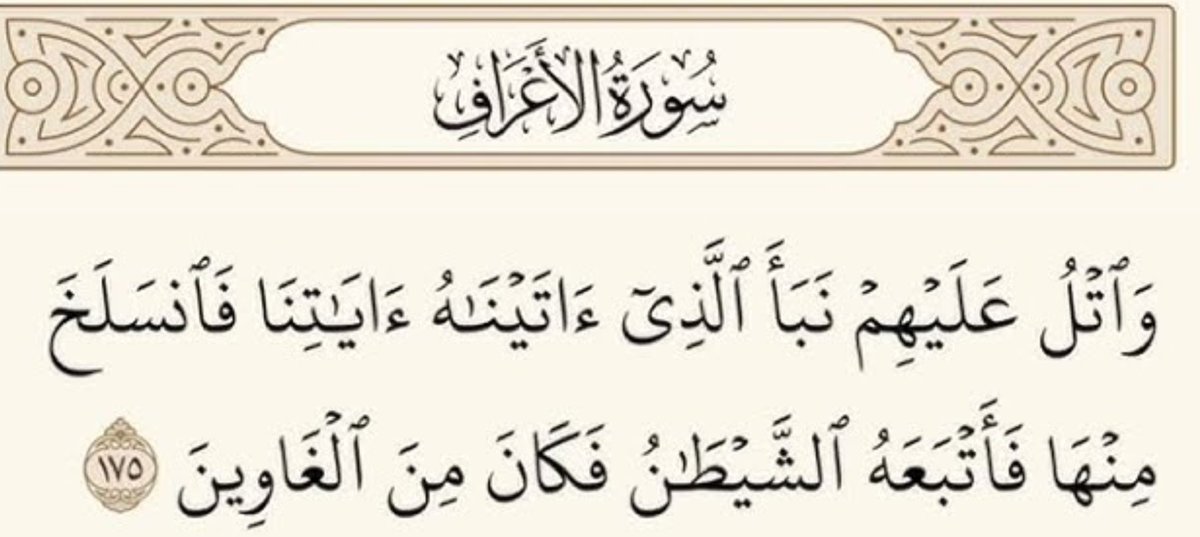 سُورَةُ الأَعْرَافِ
وَٱتْلُ عَلَيْهِمْ نَبَأَ ٱلَّذِىٓ ءَاتَيْنَـٰهُ ءَايَـٰتِنَا فَٱنسَلَخَ
مِنْهَا فَأَتْبَعَهُ ٱلشَّيْطَـٰنُ فَكَانَ مِنَ ٱلْغَاوِينَ ١٧٥